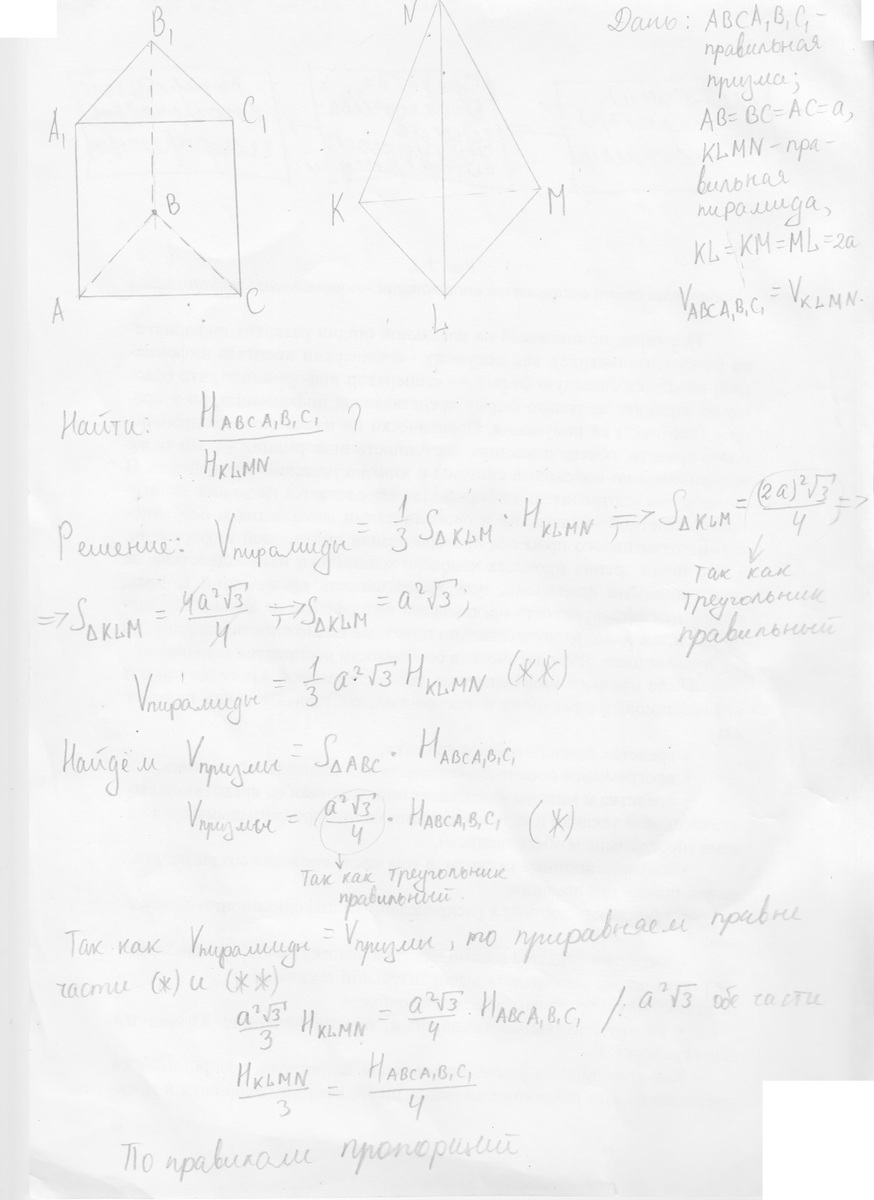 B₁
A₁
C₁
B
A
C
N
K
M
L
Дано: ABCA₁B₁C₁ –
правильная
призма;
AB = BC = AC = a,
KLMN – пра-
вильная
пирамида,
KL = KM = ML = 2a
V_ABCA₁B₁C₁ = V_KLMN.
Найти: H_ABCA₁B₁C₁ / H_KLMN ?
Решение: V_пирамиды = 1/3 S_ΔKLM · H_KLMN ; => S_ΔKLM = (2a)²√3 / 4 ; =>
так как
треугольник
правильный
=> S_ΔKLM = 4a²√3 / 4 ; => S_ΔKLM = a²√3 ;
V_пирамиды = 1/3 a²·√3 H_KLMN (**)
Найдём V_призмы = S_ΔABC · H_ABCA₁B₁C₁
V_призмы = a²√3 / 4 · H_ABCA₁B₁C₁ (*)
так как треугольник
правильный.
Так как V_пирамиды = V_призмы, то приравняем правые
части (*) и (**)
a²√3 / 3 H_KLMN = a²√3 / 4 · H_ABCA₁B₁C₁ /: a²√3 обе части
H_KLMN / 3 = H_ABCA₁B₁C₁ / 4
По правилам пропорций